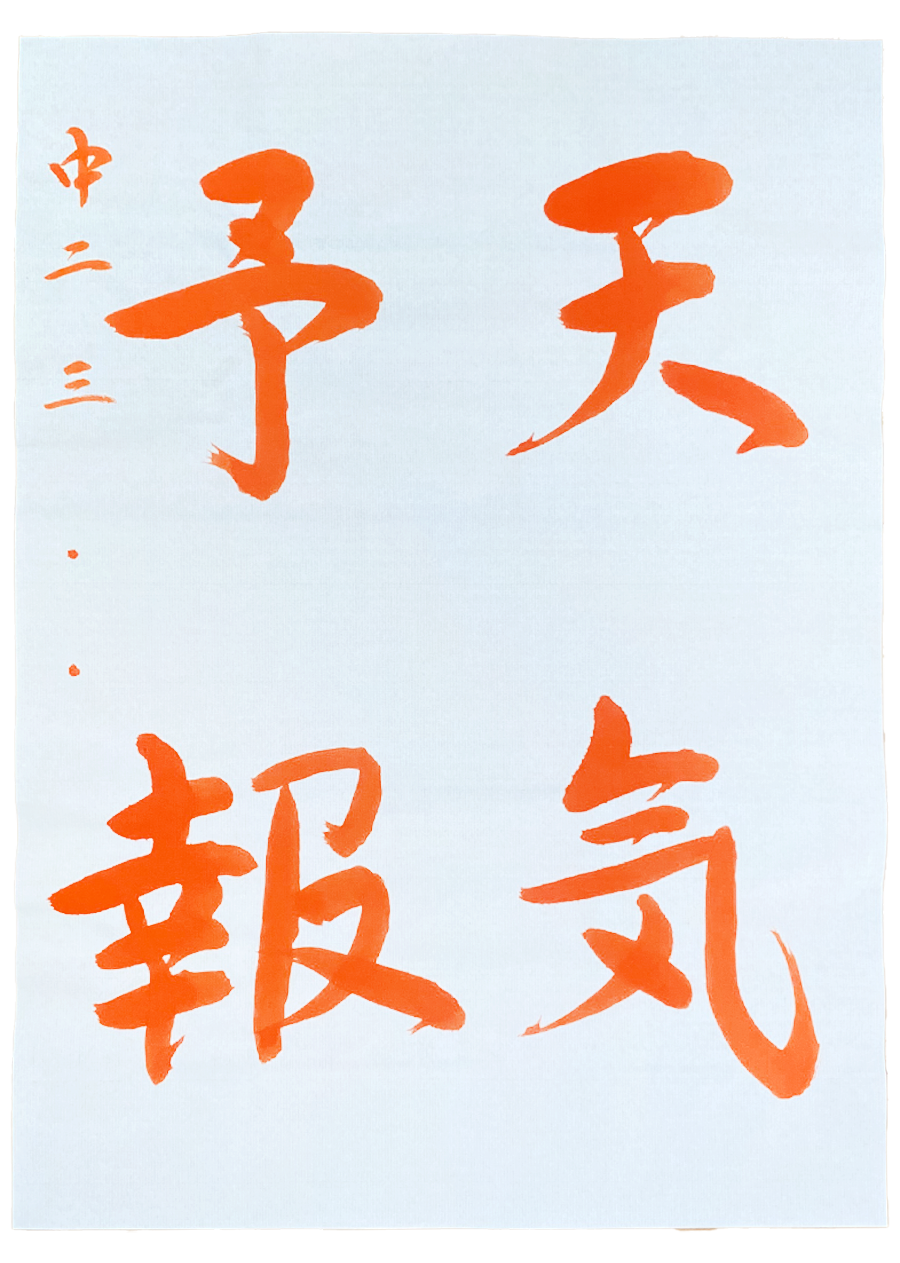 天気
予報
中二 三・・